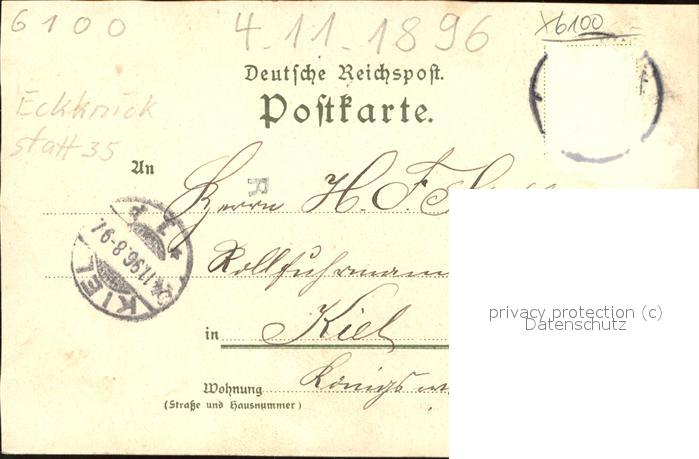 6100 4.11.1896 X6100
Deutsche Reichspost.
Postkarte.
Eckknick
statt 35
An
R
Herrn H. F.
Rollfuhrmann
in Kiel
KIEL
4.11.96.8-9
Wohnung Königs
(Straße und Hausnummer)
privacy protection (c)
Datenschutz